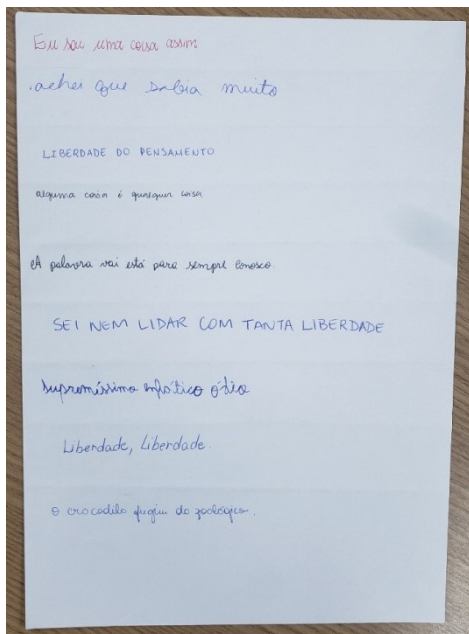 Eu sou uma coisa assim
.achei que sabia muito
LIBERDADE DO PENSAMENTO
alguma coisa é qualquer coisa
A palavra vai está para sempre conosco.
SEI NEM LIDAR COM TANTA LIBERDADE
supromíssimo enfático ódio
Liberdade, Liberdade.
o crocodilo fugiu do zoológico.